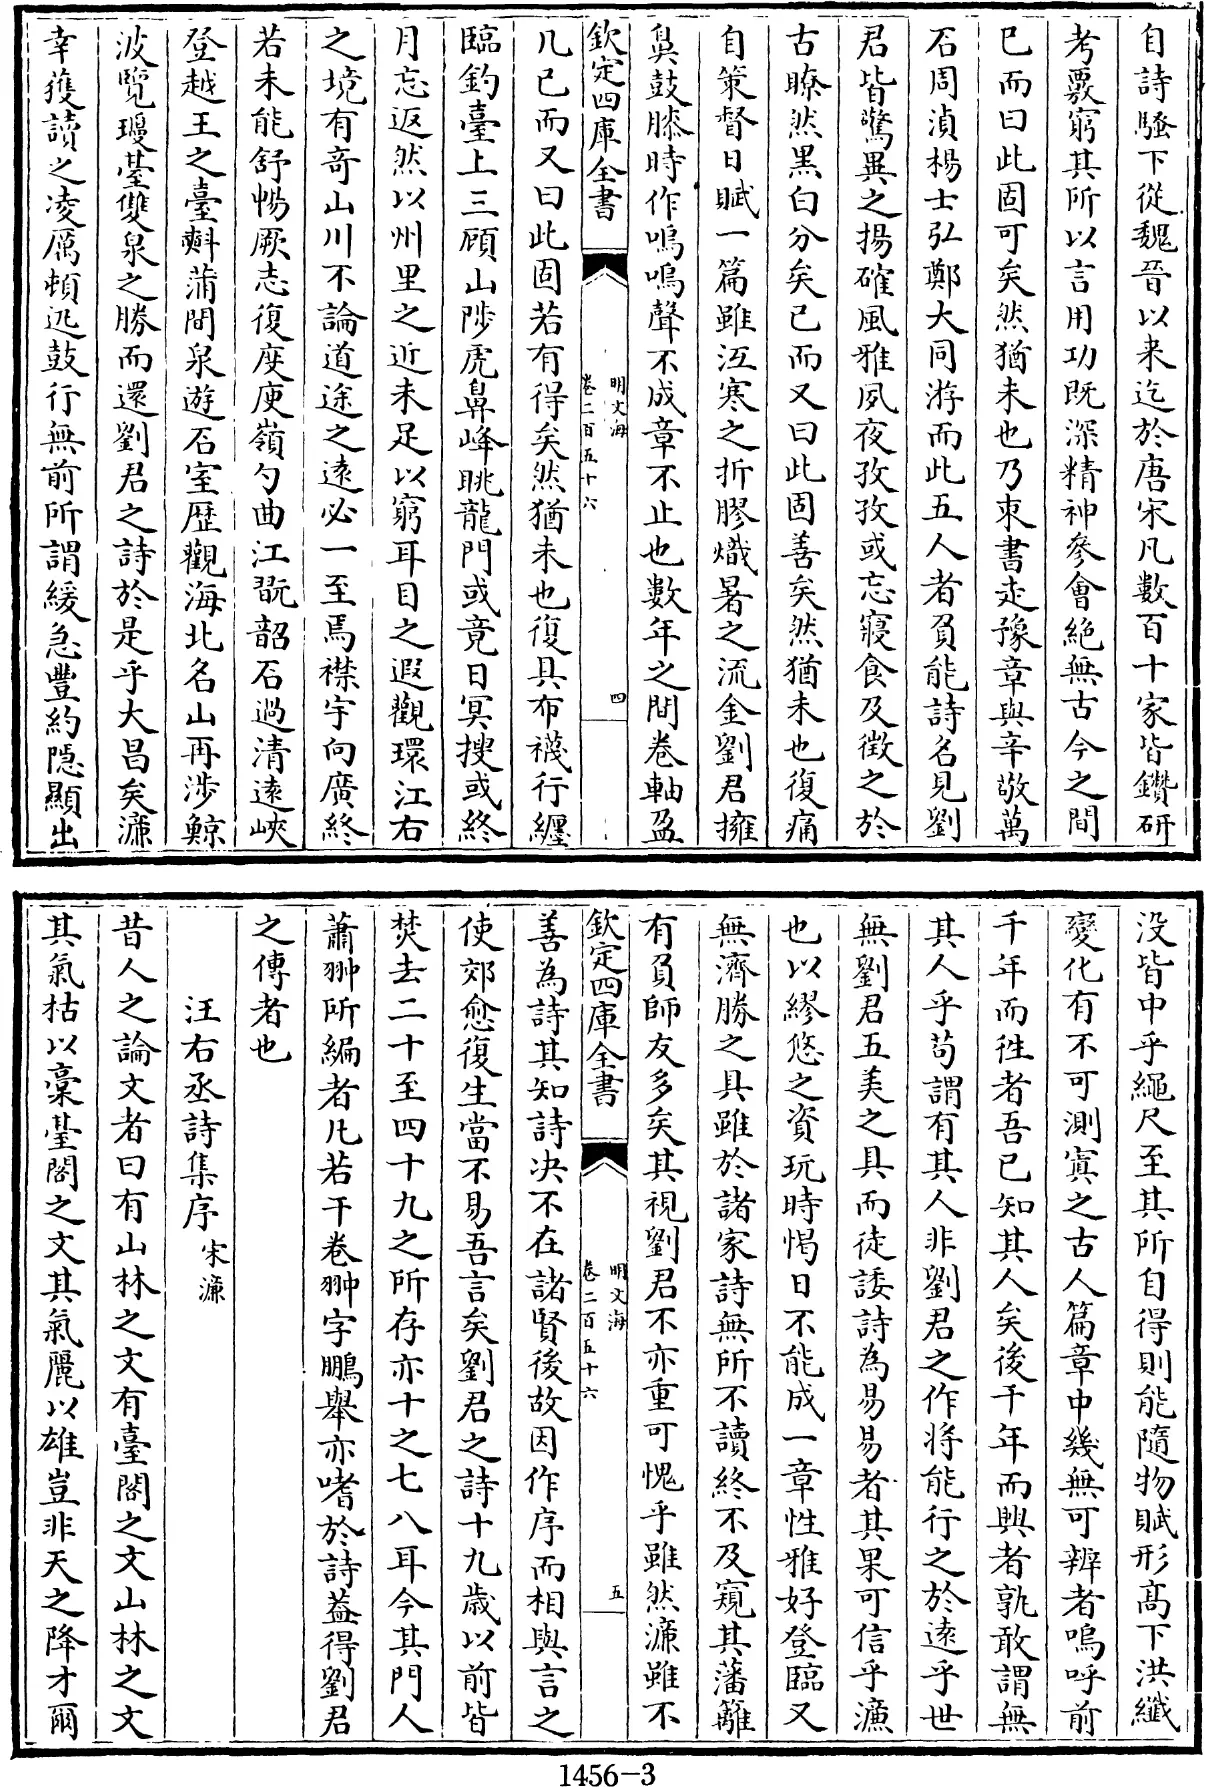 自詩騷下從魏晉以来迄於唐宋凡數百十家皆鑽研
考覈窮其所以言用功既深精神參㑹絶無古今之間
已而曰此固可矣然猶未也乃束書走豫章與辛敬萬
石周湞楊士弘鄭大同游而此五人者負能詩名見劉
君皆驚異之揚確風雅夙夜孜孜或忘寢食及徴之於
古瞭然黒白分矣已而又曰此固善矣然猶未也復痛
自策督日賦一篇雖沍寒之折膠熾暑之流金劉君擁
鼻鼓膝時作嗚嗚聲不成章不止也數年之間卷軸盈
欽定四庫全書
明文海
卷二百五十六
四
几已而又曰此固若有得矣然猶未也復具布襪行纒
臨釣臺上三顧山陟虎鼻峰眺龍門或竟日冥搜或終
月忘返然以州里之近未足以窮耳目之遐觀環江右
之境有竒山川不論道途之逺必一至焉襟宇向廣終
若未能舒暢厥志復度庾嶺勺曲江翫韶石過清逺峽
登越王之臺㪺蒲間泉遊石室歴觀海北名山再渉鯨
波覽瓊䑓雙泉之勝而還劉君之詩於是乎大昌矣濂
幸獲讀之凌厲頓迅鼓行無前所謂緩急豐約隱顯出
没皆中乎繩尺至其所自得則能隨物賦形髙下洪纖
變化有不可測寘之古人篇章中幾無可辨者嗚呼前
千年而徃者吾已知其人矣後千年而興者孰敢謂無
其人乎苟謂有其人非劉君之作將能行之於逺乎世
無劉君五美之具而徒諉詩為易易者其果可信乎濂
也以繆悠之資玩時愒日不能成一章性雅好登臨又
無濟勝之具雖於諸家詩無所不讀終不及窺其藩籬
有負師友多矣其視劉君不亦重可愧乎雖然濂雖不
欽定四庫全書
明文海
卷二百五十六
五
善為詩其知詩决不在諸賢後故因作序而相與言之
使郊愈復生當不易吾言矣劉君之詩十九歳以前皆
焚去二十至四十九之所存亦十之七八耳今其門人
蕭翀所編者凡若干卷翀字鵬舉亦嗜於詩葢得劉君
之傳者也
汪右丞詩集序 宋濂
昔人之論文者曰有山林之文有臺閣之文山林之文
其氣枯以槀䑓閣之文其氣麗以雄豈非天之降才爾
1456-3